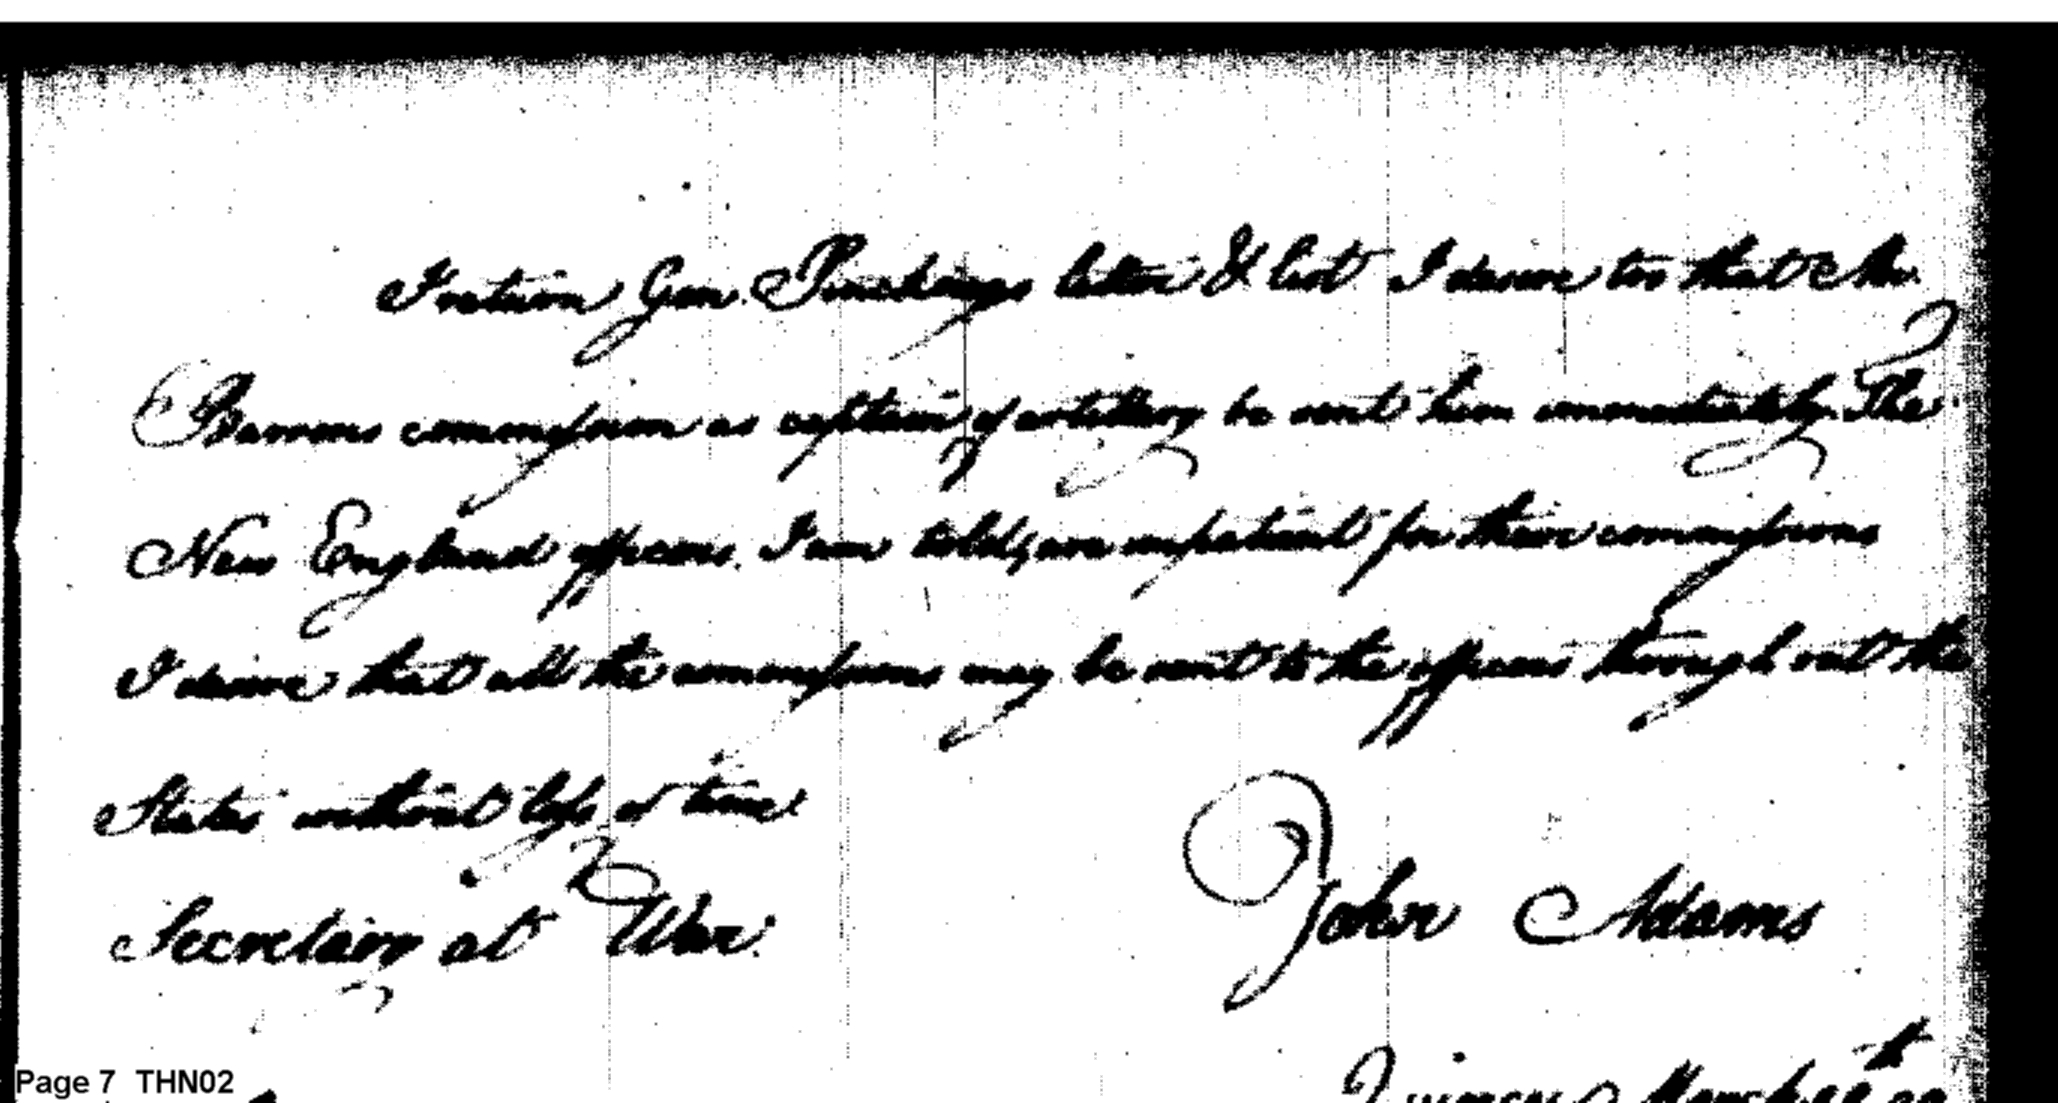 I return Gen. Pinckneys letter & list I desire too that Mr.
Barrons commission as captain of artillery be sent him immediately. The
New England officers, I am told, are impatient for their commissions
I desire that all the commissions may be sent to the officers through out the
States without loss of time
John Adams
Secretary at War.
Quincy March 29th 99
Page 7 THN02